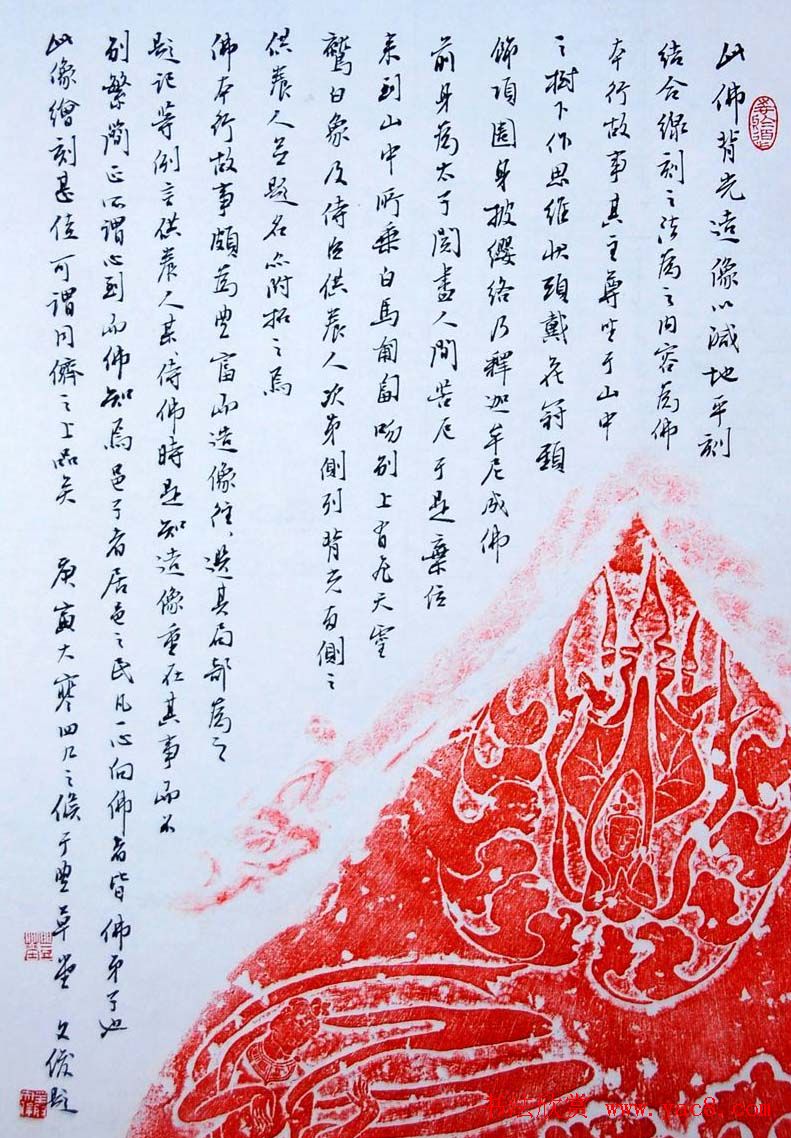 此佛背光造像以減地平刻
結合線刻之法為之內容為佛
本行故事其主尊坐于山中
之樹下作思維狀頭戴花冠頸
飾項圈身披纓絡乃釋迦牟尼成佛
前身為太子閱盡人間苦厄于是棄位
來到山中所乘白馬匍匐吻別上有飛天靈
鷲白象及侍臣供養人次第側列背光右側之
供養人並題名亦附拓之焉
佛本行故事頗為豐富而造像往、選其局部為之
題記等例言供養人某、侍佛時是知造像重在其事而不
別繁簡正所謂心到而佛知焉邑子者居邑之民凡一心向佛者皆佛弟子也
此像繪刻甚佳可謂同儕之上品矣 庚寅大寒四九之候于豐草堂 文俊題
书法欣赏 www.yac8.com